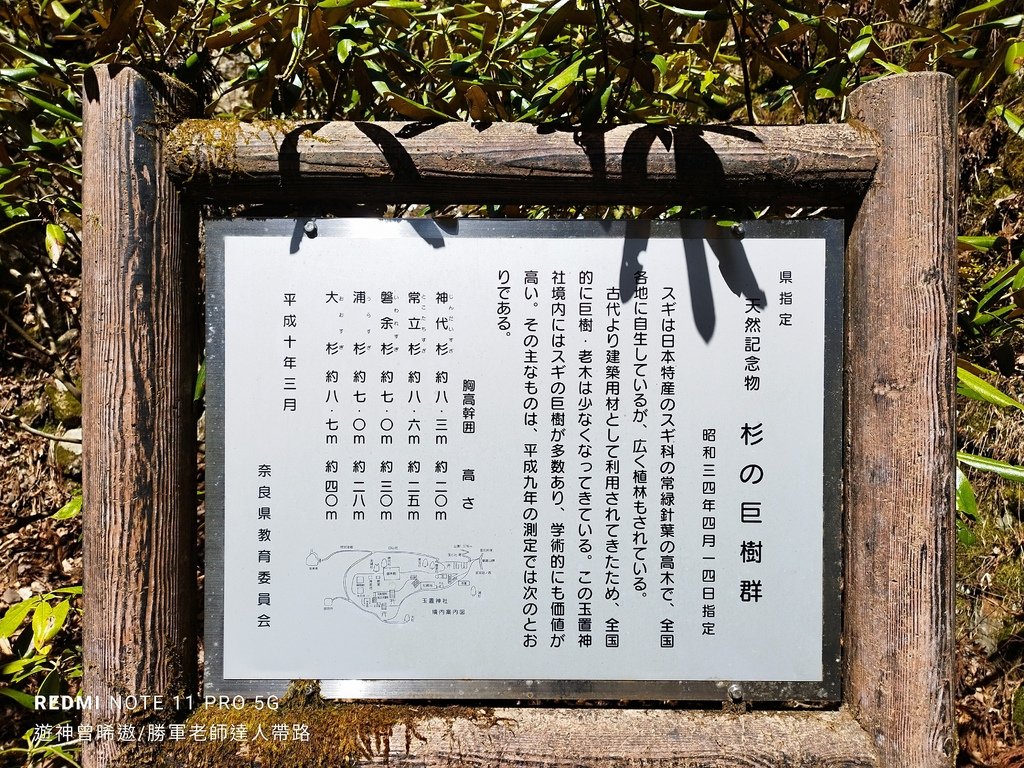 県指定
天然記念物 杉の巨樹群
昭和三四年四月一四日指定
スギは日本特産のスギ科の常緑針葉の高木で、全国
各地に自生しているが、広く植林もされている。
古代より建築用材として利用されてきたため、全国
的に巨樹・老木は少なくなってきている。この玉置神
社境内にはスギの巨樹が多数あり、学術的にも価値が
高い。その主なものは、平成九年の測定では次のとお
りである。
胸高幹囲 高さ
神代杉 約八・三m 約二〇m
じんだいすぎ
常立杉 約八・六m 約二五m
とこたちすぎ
磐余杉 約七・〇m 約三〇m
いわれすぎ
浦杉 約七・〇m 約二八m
うらすぎ
大杉 約八・七m 約四〇m
おおすぎ
平成十年三月
奈良県教育委員会
玉置神社
境内案内図
REDMI NOTE 11 PRO 5G
遊神曾晞遨/勝軍老師達人帶路